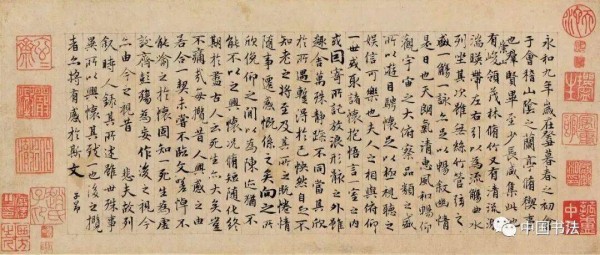 永和九年歲在癸丑暮春之初會
于會稽山陰之蘭亭脩稧事
也羣賢畢至少長咸集此地
有崇山峻領茂林脩竹又有清流激
湍暎帶左右引以為流觴曲水
列坐其次雖無絲竹管弦之
盛一觴一詠亦足以暢敘幽情
是日也天朗氣清惠風和暢仰
觀宇宙之大俯察品類之盛
所以遊目騁懷足以極視聽之
娛信可樂也夫人之相與俯仰
一世或取諸懷抱悟言一室之內
或因寄所託放浪形骸之外雖
趣舍萬殊靜躁不同當其欣
於所遇暫得於己怏然自足不
知老之將至及其所之既惓情
隨事遷感慨係之矣向之所
欣俛仰之間以為陳迹猶不
能不以之興懷況脩短隨化終
期於盡古人云死生亦大矣豈
不痛哉每攬昔人興感之由
若合一契未嘗不臨文嗟悼不
能喻之於懷固知一死生為虛
誕齊彭殤為妄作後之視今
亦由今之視昔悲夫故列
敘時人錄其所述雖世殊事
異所以興懷其致一也後之攬
者亦將有感於斯文
子昂
中国书法